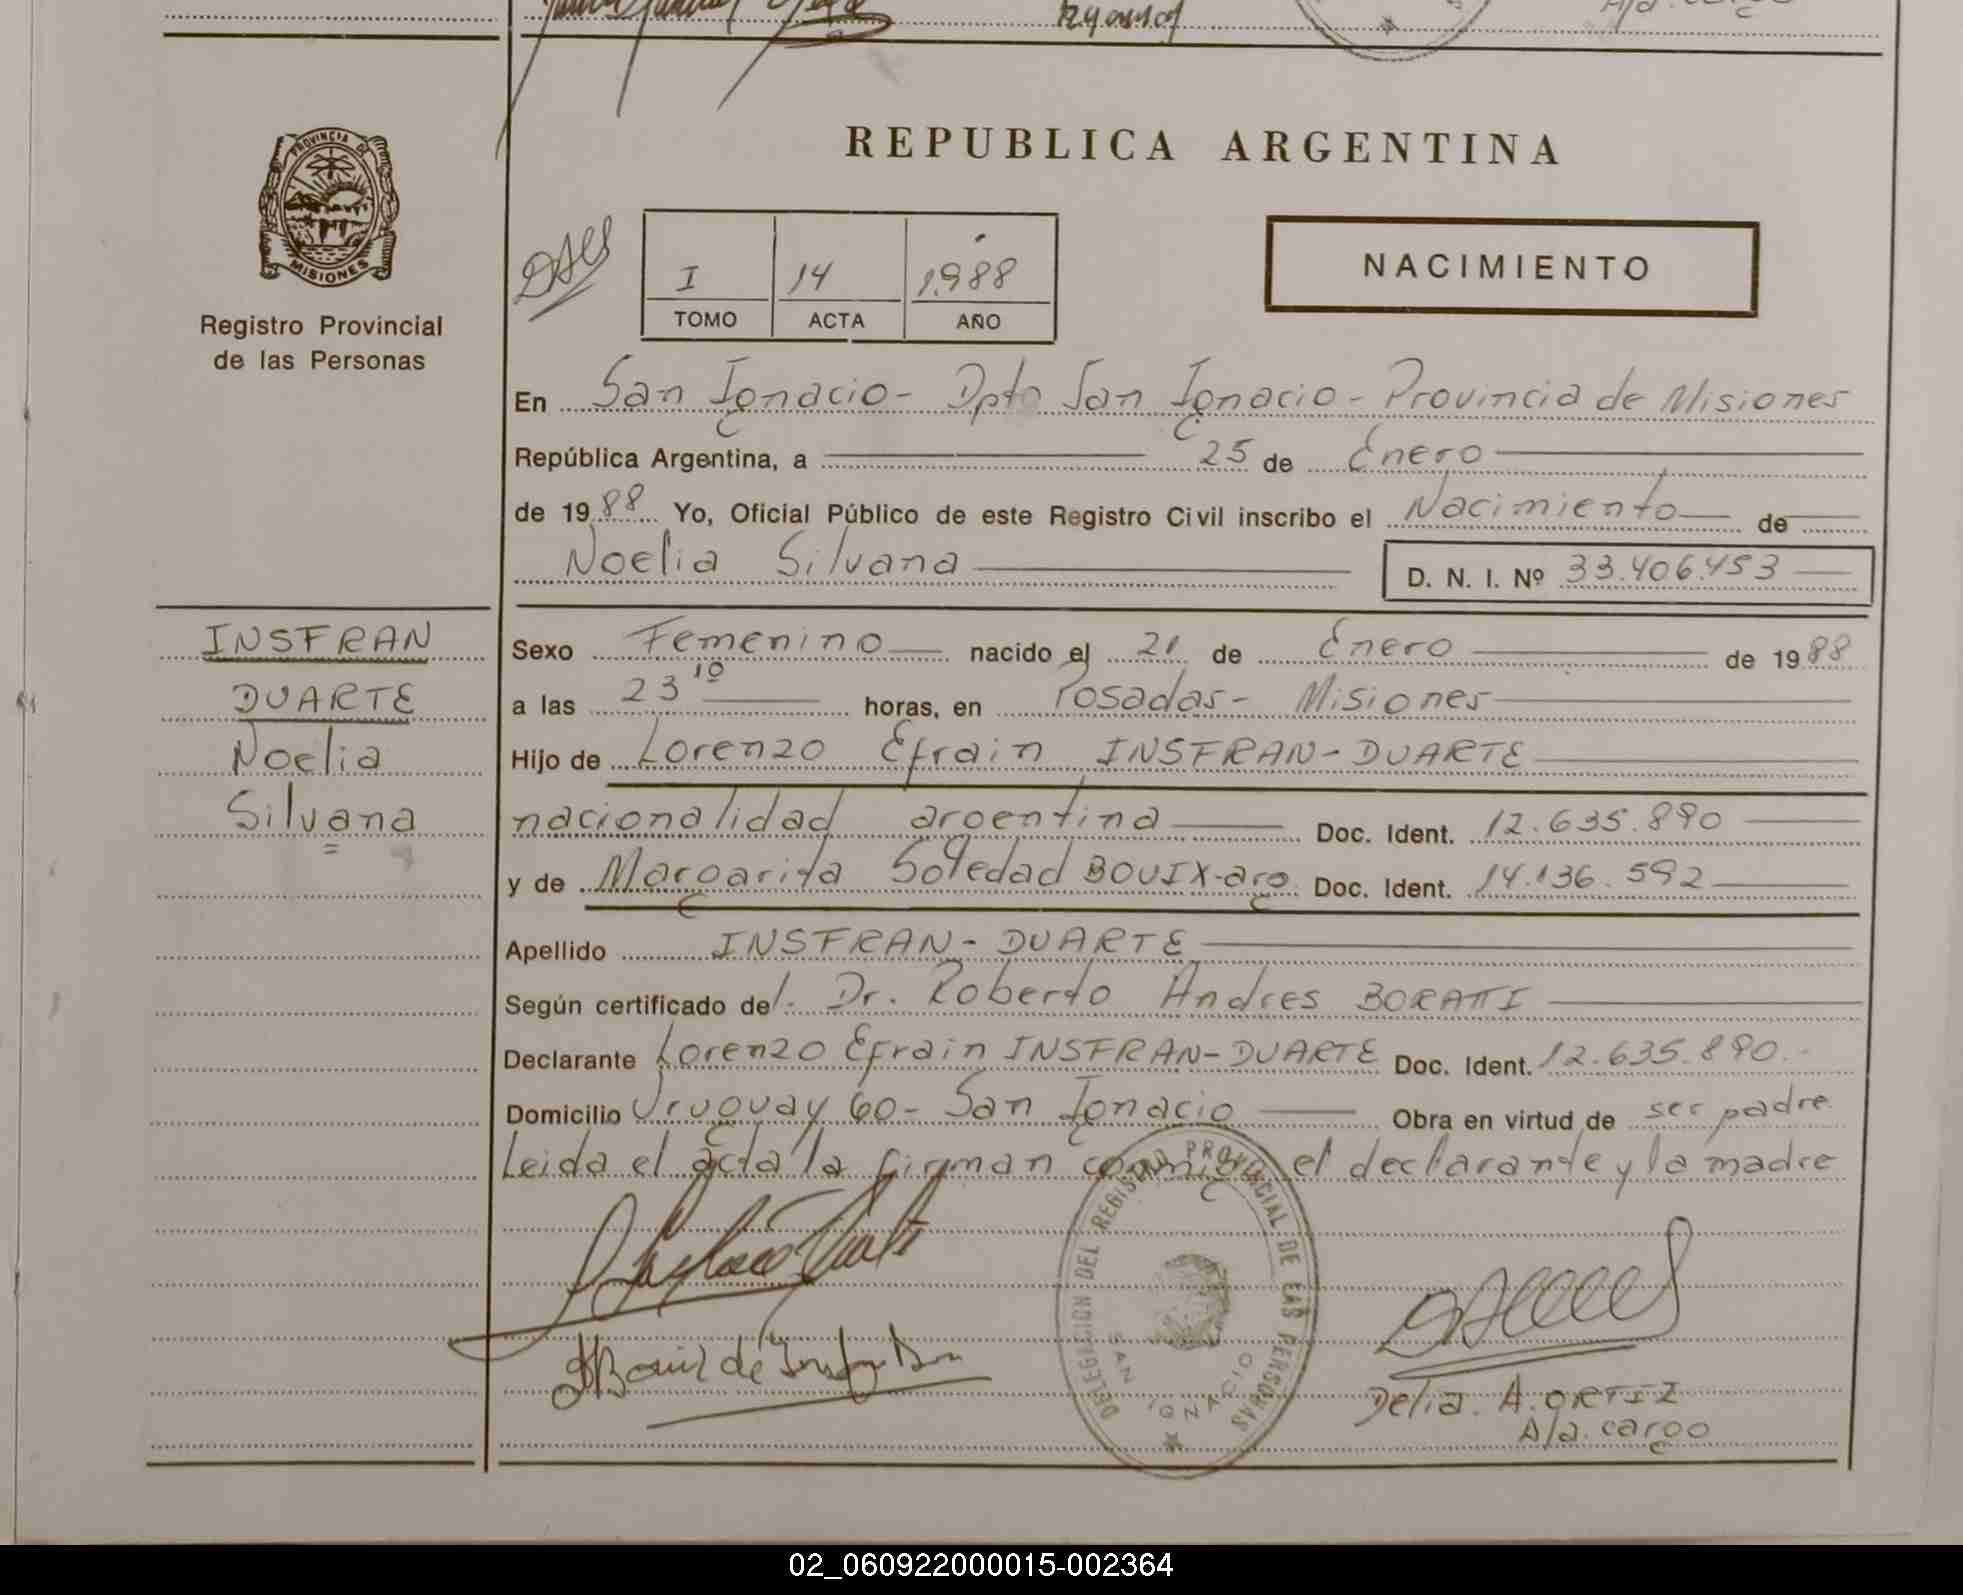 REPUBLICA ARGENTINA
PROVINCIA DE
MISIONES
Registro Provincial
de las Personas
I 14 1988
TOMO ACTA AÑO
NACIMIENTO
En San Ignacio - Dpto San Ignacio - Provincia de Misiones
República Argentina, a 25 de Enero
de 1988 Yo, Oficial Público de este Registro Civil inscribo el Nacimiento de
Noelia Silvana D. N. I. Nº 33.406.453
INSFRAN
DUARTE
Noelia
Silvana
Sexo Femenino nacido el 21 de Enero de 1988
a las 23 10 horas, en Posadas - Misiones
Hijo de Lorenzo Efrain INSFRAN-DUARTE
nacionalidad argentina Doc. Ident. 12.635.890
y de Margarita Soledad BOUIX-arg Doc. Ident. 14.136.592
Apellido INSFRAN-DUARTE
Según certificado del. Dr. Roberto Andres BORATTI
Declarante Lorenzo Efrain INSFRAN-DUARTE Doc. Ident. 12.635.890.-
Domicilio Uruguay 60 - San Ignacio Obra en virtud de ser padre
Leida el acta la firman conmigo el declarante y la madre
DELEGACION DEL REGISTRO PROVINCIAL DE LAS PERSONAS
SAN IGNACIO
Delia. A. ORTIZ
A/a. cargo
02_060922000015-002364